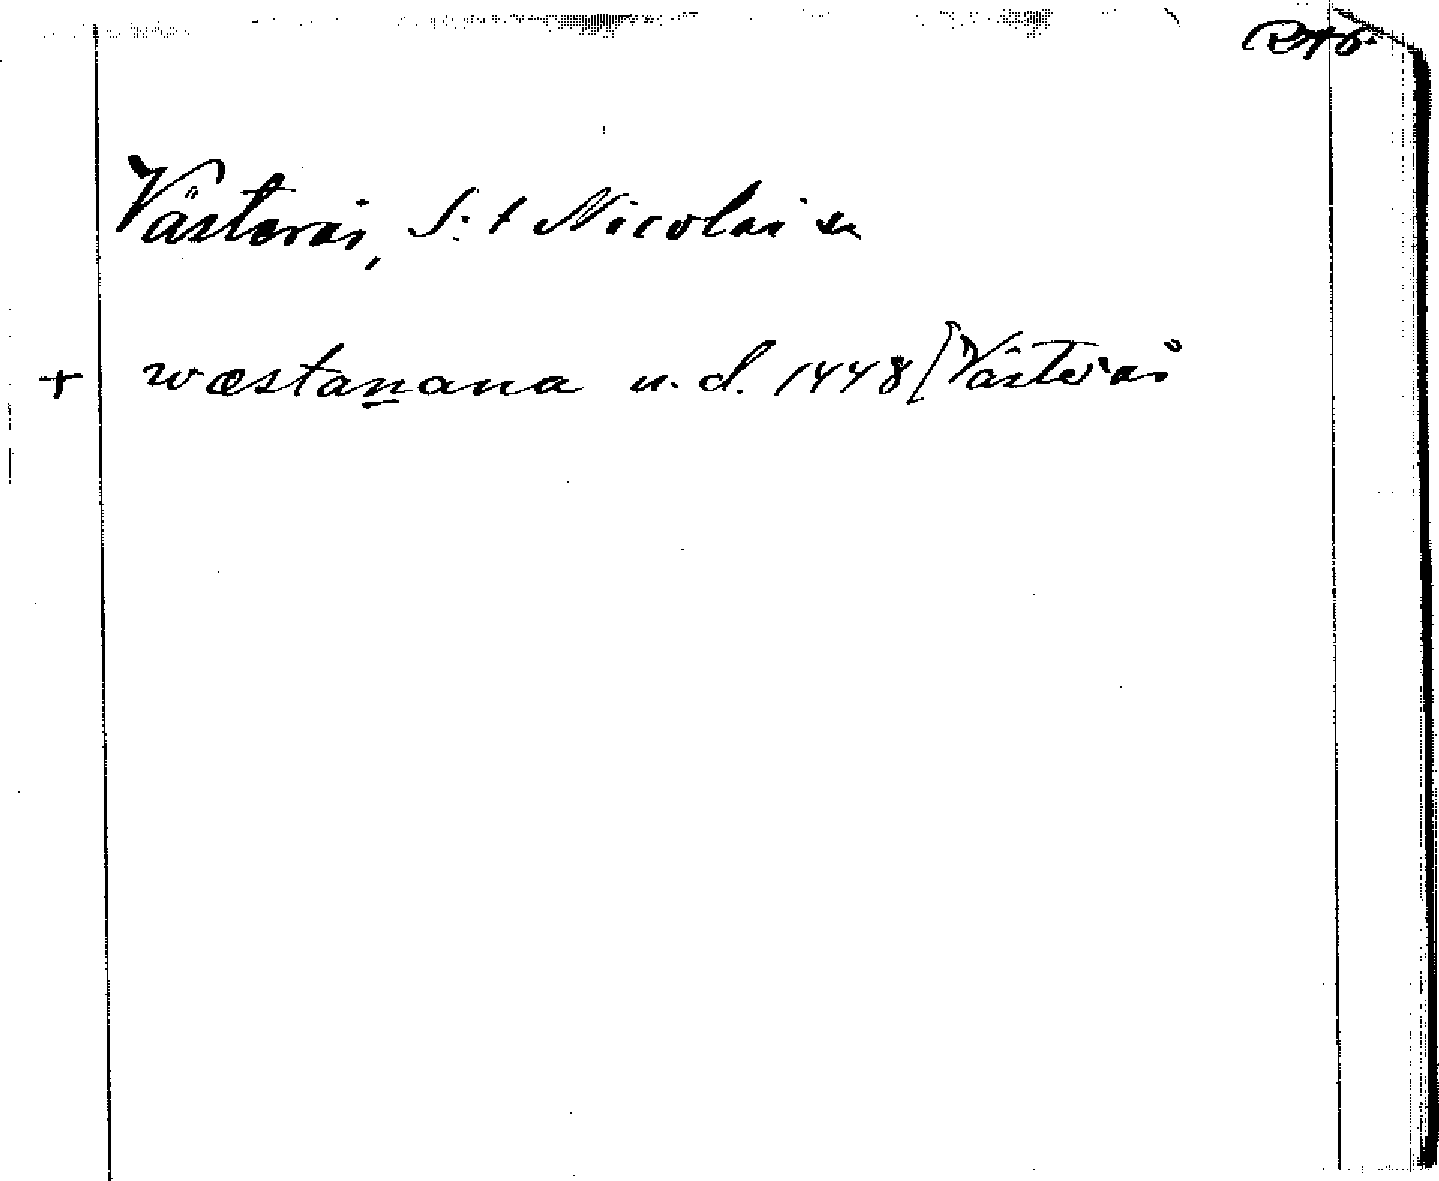 Västerås, S:t Nicolai sn
+ wæstanana u.d. 1448 [Västerås